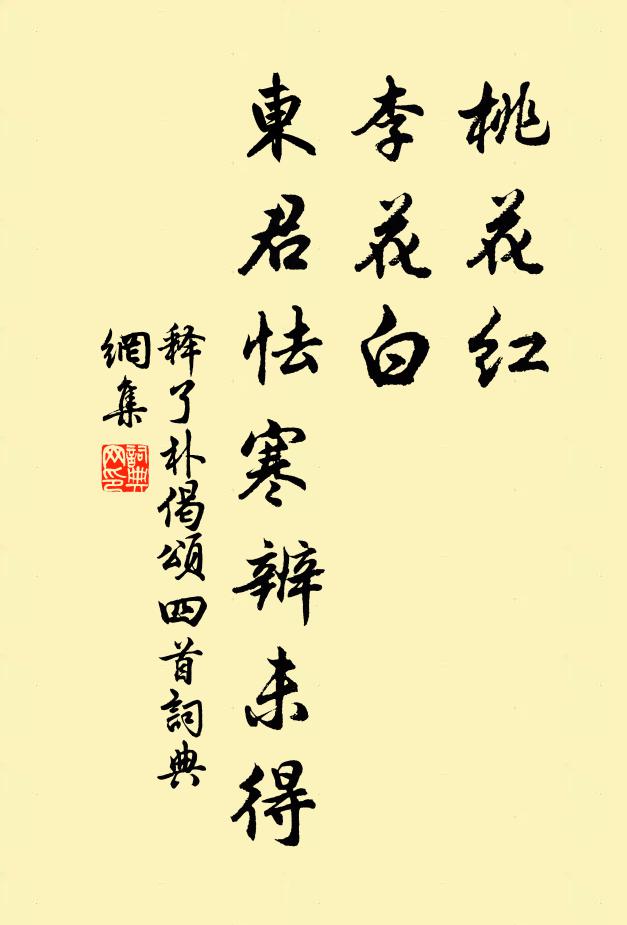 桃花红
李花白
東君怯寒辨未得
释了朴偈頌四首詞典
網集
詞典
网印